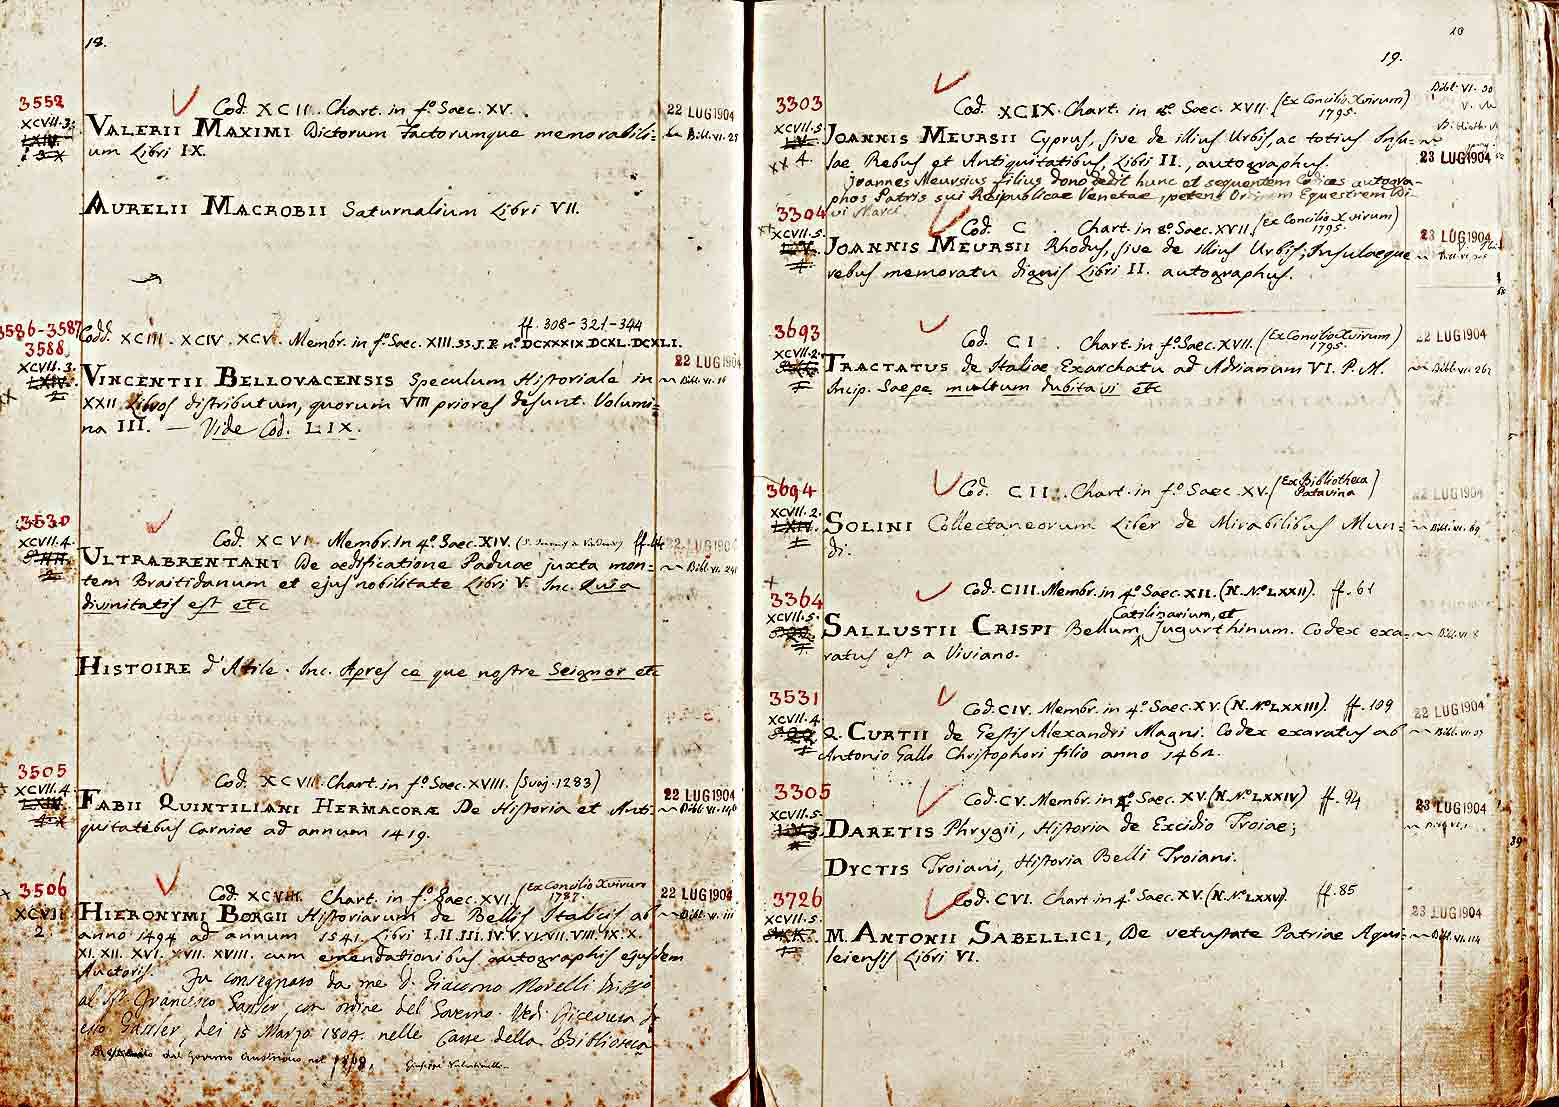 18.
3552
Cod. XCII. Chart. in fº. Saec. XV.
22 LUG 1904
XCVII.3.
VALERII MAXIMI Dictorum factorumque memorabili=
Bibl. VI. 25
um Libri IX.
AURELII MACROBII Saturnalium Libri VII.
3586-3587
3588
ff. 308-321-344
Codd. XCIII. XCIV. XCV. Membr. in fº. Saec. XIII. ss. J. P. nº. DCXXXIX. DCXL. DCXLI.
22 LUG 1904
XCVII.3.
LXIV.
VINCENTII BELLOVACENSIS Speculum Historiale in
Bibl. VI. 16
XXII Libros distributum, quorum VIII priores desunt. Volumi=
na III. — Vide Cod. LIX.
3530
Cod. XCVI. Membr. In 4º. Saec. XIV. ff.
22 LUG 1904
XCVII.4.
ULTRABRENTANI De aedificatione Paduae juxta mon=
Bibl. VI.
tem Braitidanum et ejus nobilitate Libri V. Inc. Quia
divinitatis est etc
HISTOIRE d'Atile. Inc. Apres ce que nostre Seignor etc
3505
Cod. XCVII. Chart. in fº. Saec. XVIII. (Svaj. 1283)
22 LUG 1904
XCVII.4.
LXIV.
FABII QUINTILIANI HERMACORÆ De Historia et Anti=
Bibl. VI.
quitatibus Carniae ad annum 1419.
3506
Cod. XCVIII. Chart. in fº. Saec. XVI. (Ex Concilio Xvirum
1787.
22 LUG 1904
XCVII
2.
HIERONYMI BORGII Historiarum de Bellis Italicis ab
Bibl. VI. 111
anno 1494 ad annum 1541. Libri I. II. III. IV. V. VI. VII. VIII. IX. X.
XI. XII. XVI. XVII. XVIII. cum emendationibus autographis ejusdem
Auctoris. Fu consegnato da me D. Giacomo Morelli
al Sr. Francesco Gassler, con ordine del Governo. Vedi Ricevuta di
esso Gassler, dei 15 Marzo 1804. nelle Carte della Biblioteca
dal Governo Austriaco nel 1868. Giuseppe Valentinelli
10
19.
3303
Cod. XCIX. Chart. in 8º. Saec. XVII. (Ex Concilio Xvirum)
1795.
Bibl. VI. 30
XCVII.5.
JOANNIS MEURSII Cyprus, sive de illius Urbis, ac totius Insu=
4.
lae Rebus et Antiquitatibus, Libri II., autographus.
23 LUG 1904
Joannes Meursius filius dono dedit hunc et sequentem Codices autogra-
phos Patris sui Reipublicae Venetae, petens Ordinem Equestrem Di-
vi Marci
3304
Cod. C. Chart. in 8º. Saec. XVII. (Ex Concilio X virum)
1795.
23 LUG 1904
XCVII.5.
JOANNIS MEURSII Rhodus, sive de illius Urbis, Insulaeque
rebus memoratu dignis Libri II. autographus.
3693
Cod. CI. Chart. in fº. Saec. XVII. (Ex Concilio Xvirum)
1795.
22 LUG 1904
XCVII.2.
TRACTATUS de Italiae Exarchatu ad Adrianum VI. P. M.
Bibl. VI.
Incip. Saepe multum dubitavi etc
3694
Cod. CII. Chart. in fº. Saec. XV. (Ex Bibliotheca
Patavina)
22 LUG 1904
XCVII.2.
LXIV.
SOLINI Collectaneorum Liber de Mirabilibus Mun=
Bibl. VI. 69
di.
3364
Cod. CIII. Membr. in 4º. Saec. XII. (N. Nº. LXXII). ff. 61
XCVII.5.
Catilinarium, et
SALLUSTII CRISPI Bellum Jugurthinum. Codex exa=
Bibl. VI. 8
ratus est a Viviano.
3531
Cod. CIV. Membr. in 4º. Saec. XV. (N. Nº. LXXIII). ff. 109
22 LUG 1904
XCVII.4
Q. CURTII de Gestis Alexandri Magni. Codex exaratus ab
Bibl. VI. 37
Antonio Gallo Christophori filio anno 1462.
3305
Cod. CV. Membr. in 4º. Saec. XV. (N. Nº. LXXIV) ff. 94
23 LUG 1904
XCVII.5.
DARETIS Phrygii, Historia de Excidio Troiae;
39
DYCTIS Troiani, Historia Belli Troiani.
3726
Cod. CVI. Chart. in 4º. Saec. XV. (N. Nº. LXXV). ff. 85
23 LUG 1904
XCVII.5.
M. ANTONII SABELLICI, De vetustate Patriae Aqui=
Bibl. VI. 114
leiensis Libri VI.